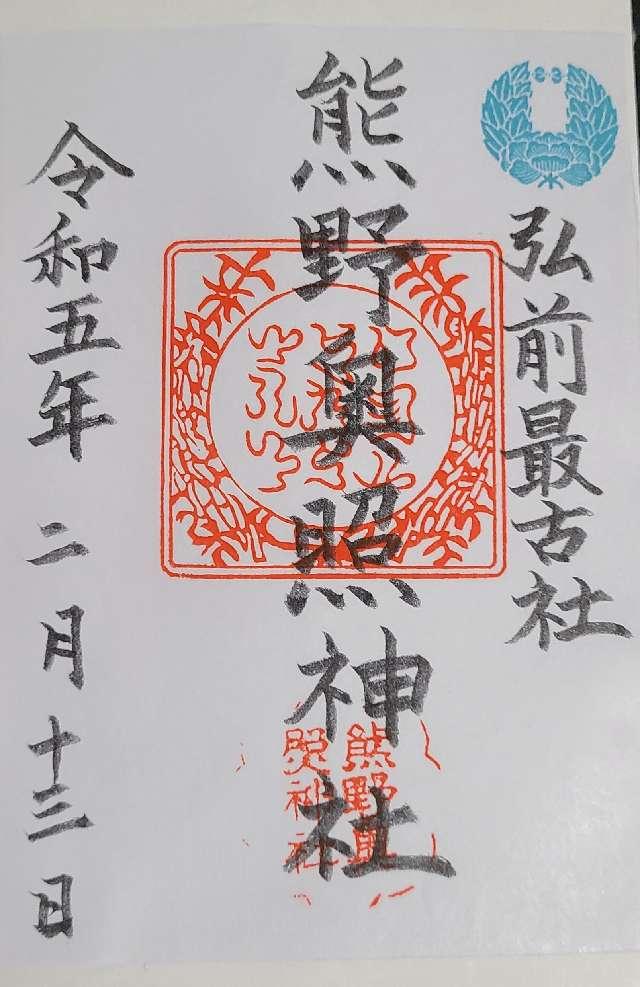 弘前最古社
熊野奥照神社
令和五年 二月十三日
熊野奥
照神社